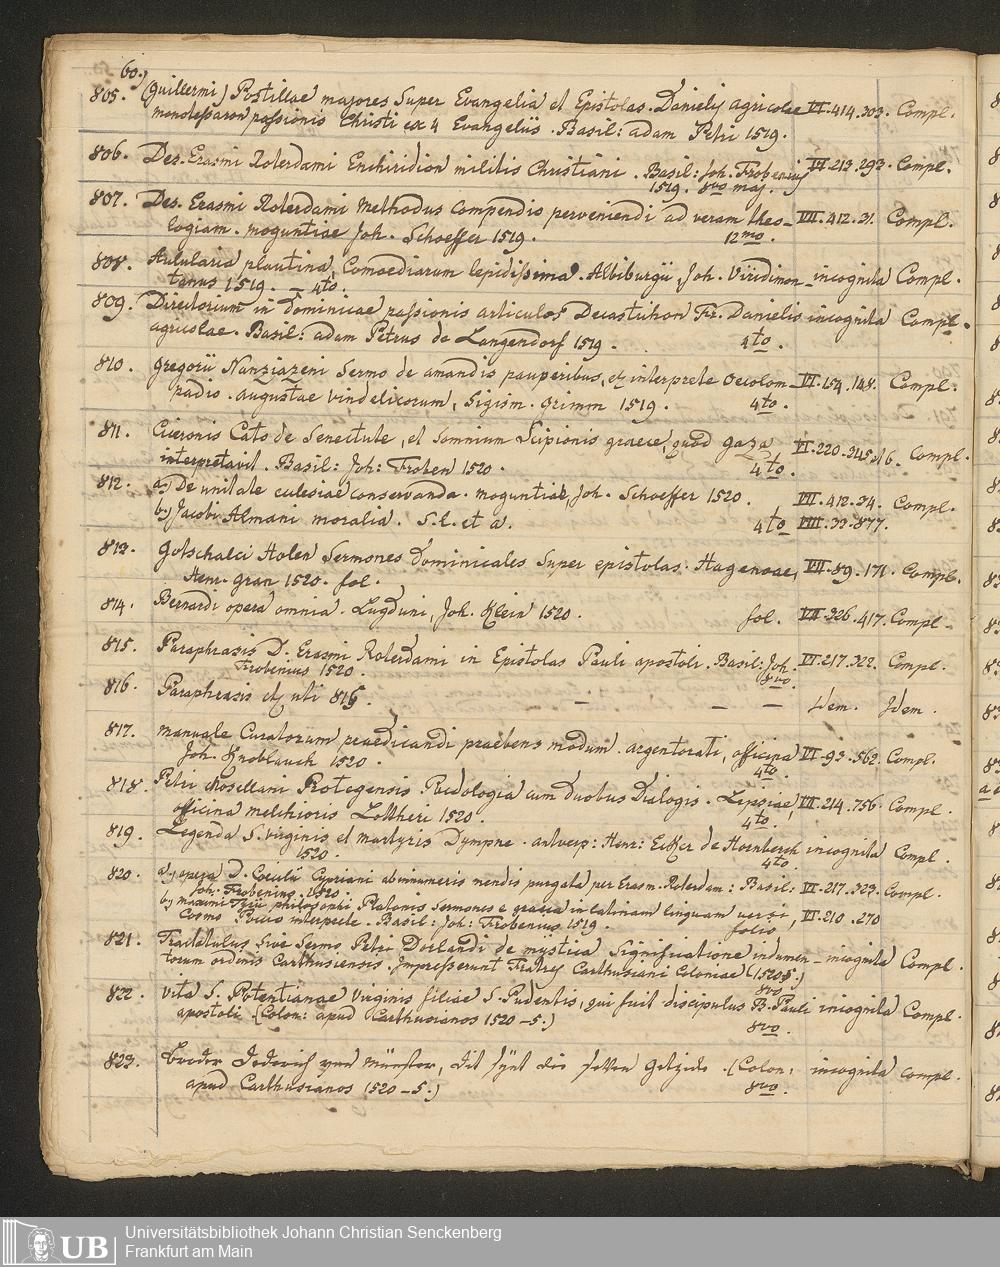 60.)
805. (Guillermi) Postillae majores super Evangelia et Epistolas. Danielis agricolae VI.414.303. Compl.
monotessaron passionis Christi ex 4 Evangeliis. Basil: adam Petri 1519.
806. Des. Erasmi Roterdami Enchiridion militis Christiani. Basil: Joh. Frobenius VI.213.293. Compl.
1519. 8vo maj.
807. Des. Erasmi Roterdami Methodus Compendio perveniendi ad veram theo- VII.412.31. Compl.
logiam. moguntiae Joh. Schoeffer 1519. 12mo.
808. Aulularia plautina, Comoediarum lepidissima. Albiburgii, Joh. Viridimon- incognita Compl.
tanus 1519. — 4to.
809. Directorium in dominicae passionis articulos Decastichon Fr. Danielis incognita Compl.
agricolae. Basil: adam Petrus de Langendorf 1519. 4to.
810. Gregorii Nanziazeni Sermo de amandis pauperibus, interprete Oecolom- VI.154.148. Compl.
padio. Augustae vindelicorum, Sigism. Grimm 1519. 4to.
811. Ciceronis Cato de Senectute, et Somnium Scipionis graece, quod gaza VI.220.345 et 6. Compl.
interpretavit. Basil: Joh: Froben 1520. 4to.
812. a) De unitate ecclesiae conservanda. moguntiae, Joh. Schoeffer 1520. VII.412.34. Compl.
b) Jacobi Almani moralia. S.l. et a. 4to VIIII.33.877.
813. Gotschalci Holen Sermones Dominicales super epistolas. Hagenoae, VII.89.171. Compl.
Henr. Gran 1520. fol.
814. Bernardi opera omnia. Lugduni, Joh. Klein 1520. fol. VII.326.417. Compl.
815. Paraphrasis D. Erasmi Roterdami in Epistolas Pauli apostoli. Basil: Joh. VI.217.322. Compl.
Frobenius 1520. 8vo.
816. Paraphrasis uti 815. — — — Idem. Idem.
817. Manuale Curatorum praedicandi praebens modum. argentorati, officina VI.93.562. Compl.
Joh. Knoblauch 1520. 4to.
818. Petri Mosellani Protegensis Paedologia cum duobus Dialogis. Lipsiae, VII.214.756. Compl.
officina Melchioris Lottheri 1520. 4to.
819. Legenda S. Virginis et martyris Dympne. antverp: Henr: Eckert de Hombergh incognita Compl.
1520. 4to
820. a) opera D. Coecilii Cypriani ab innumeris mendis purgata per Erasm. Roterdam: Basil: VI.217.323. Compl.
Joh. Frobenius 1520.
b) maximi Tyrii philosophi Platonis Sermones e graeca in latinam linguam versi, VI.210.270
Cosmo Paccio interprete. Basil: Joh: Frobenius 1519. folio
821. Tractatulus sive Sermo Petri Dorlandi de mystica Significatione indumen- incognita Compl.
torum ordinis Carthusiensis. Impresserunt Fratres Carthusiani Coloniae (1520-5.)
8vo
822. vita S. Potentianae virginis filiae S. Pudentis, qui fuit discipulus B. Pauli incognita Compl.
apostoli (Colon: apud Carthusianos 1520-5.) 8vo.
823. Broder Dederich von Münster, Dit synt die Getzide. (Colon: incognita Compl.
apud Carthusianos 1520-5.) 8vo.
UB
Universitätsbibliothek Johann Christian Senckenberg
Frankfurt am Main